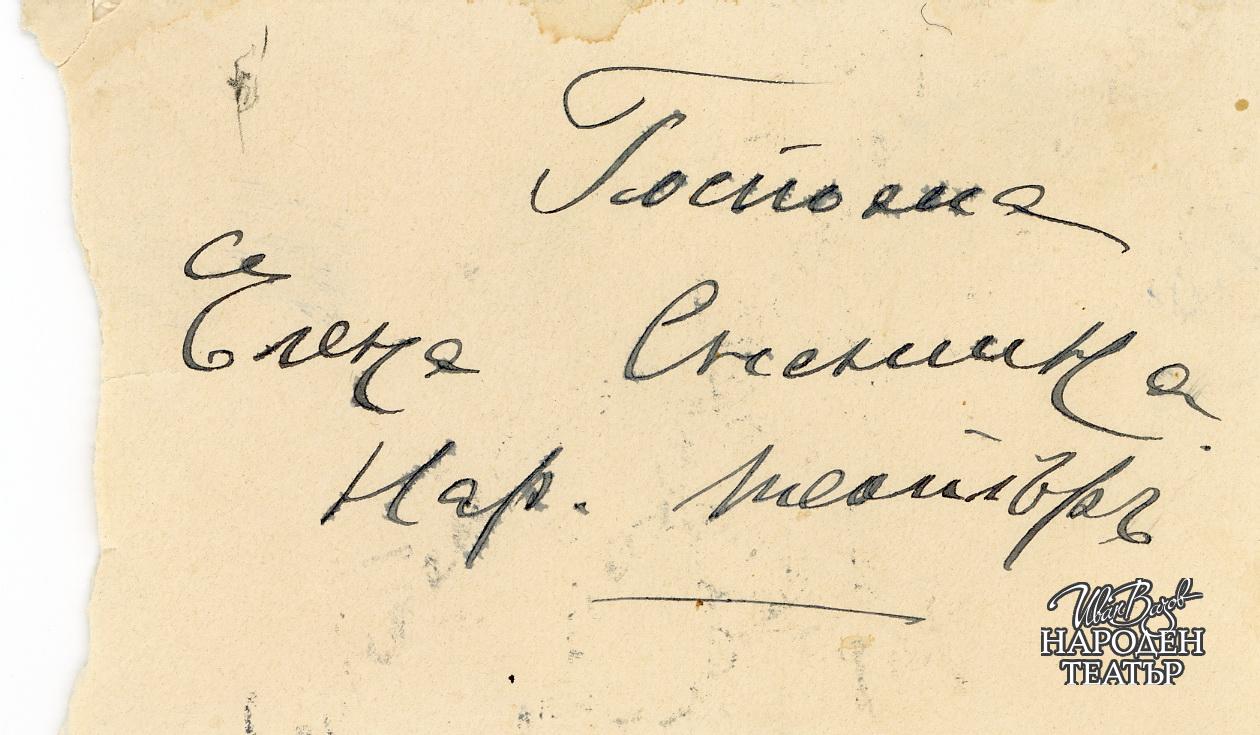 Госпожа
Елена Снежина
Нар. театъръ
Иван Вазов
НАРОДЕН
ТЕАТЪР